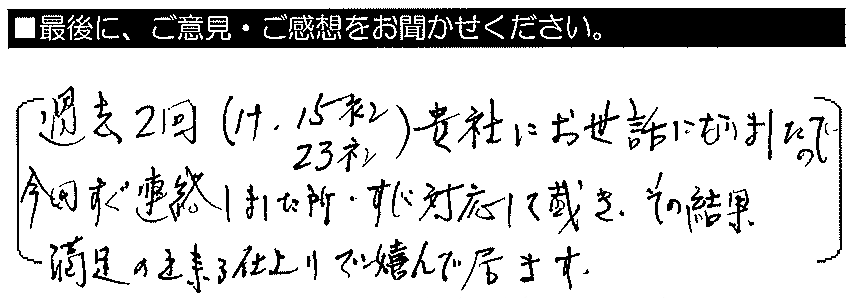 ■最後に、ご意見・ご感想をお聞かせください。
過去2回(H.15年ト 23年ト)貴社にお世話になりましたので
今回すぐ連絡しました所・すぐ対応して戴き、その結果
満足の出来る仕上りで嬉んで居ます.